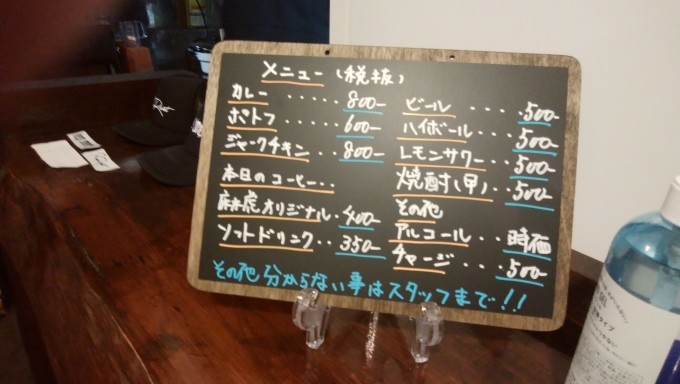 メニュー (税抜)
カレー ..... 800-
ポトフ .... 600-
ジャークチキン .. 800-
本日のコーヒー..
麻虎オリジナル. 400-
ソフトドリンク.. 350-
ビール .... 500-
ハイボール .... 500-
レモンサワー... 500-
焼酎(甲).. 500-
その他
アルコール ... 時価
チャージ .... 500-
その他 分からない事はスタッフまで!!